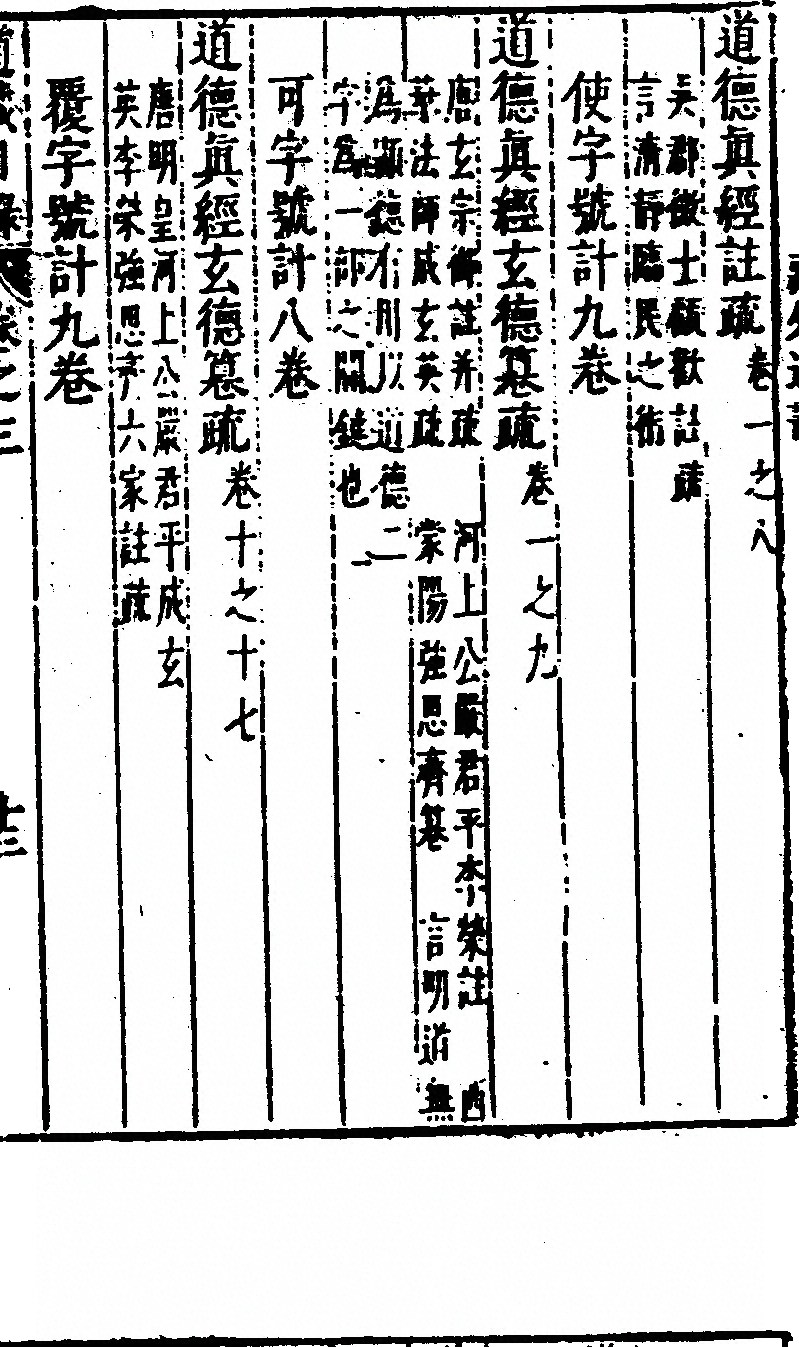 道德眞經註疏 卷一之八
吳郡徵士顧歡註疏
言清靜臨民之術
使字號計九卷
道德眞經玄德纂疏 卷一之九
唐玄宗御註并疏 河上公嚴君平李榮註 西
華法師成玄英疏 蒙陽強思齊纂 言明道無
爲顯德有用以道德二
字爲一部之關鍵也
可字號計八卷
道德眞經玄德纂疏 卷十之十七
唐明皇河上公嚴君平成玄
英李榮強思齊六家註疏
覆字號計九卷
道藏目錄 卷之三 十三